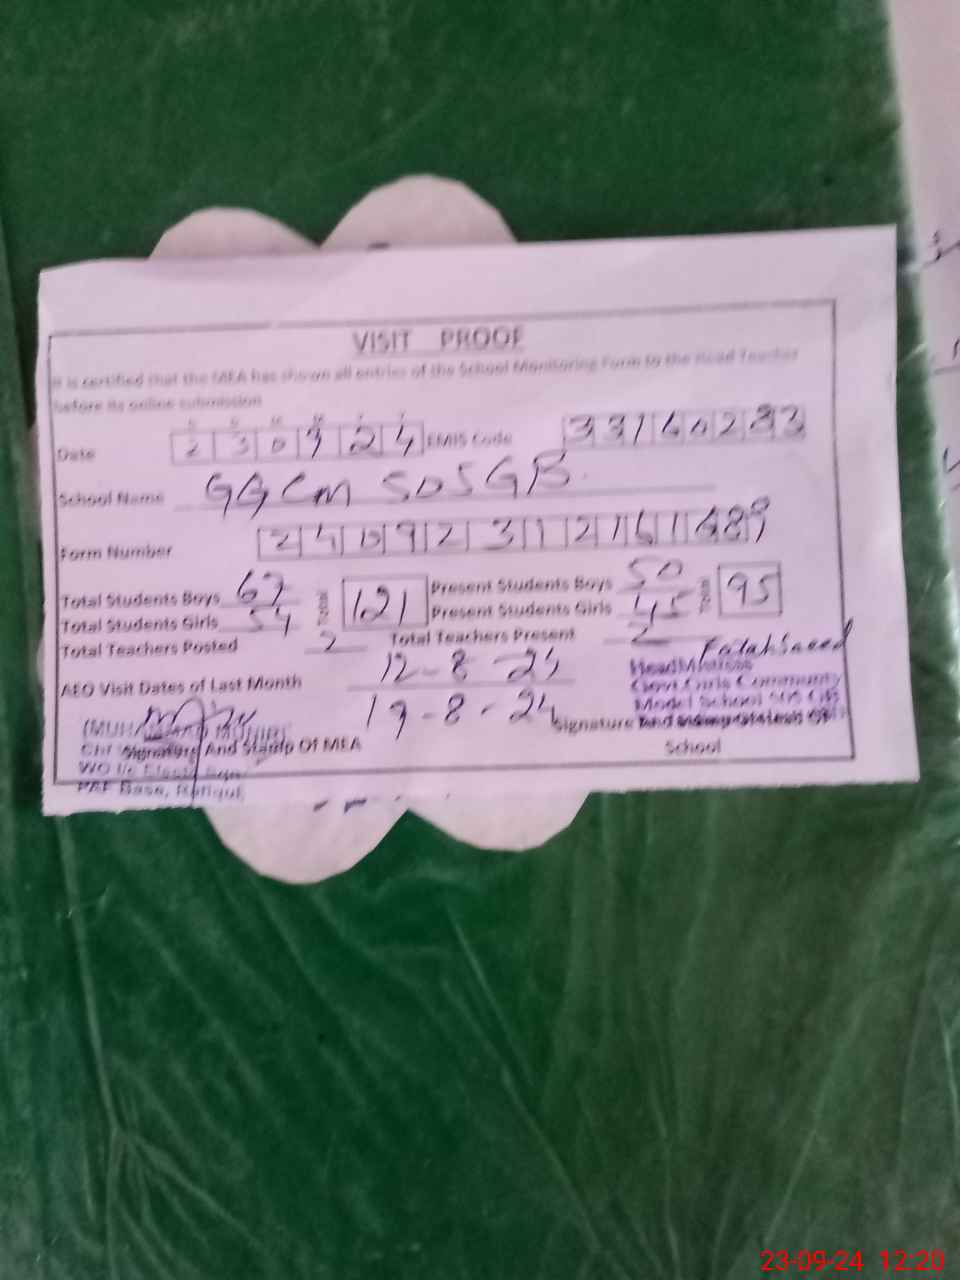 VISIT PROOF
It is certified that the MEA has shown all entries of the School Monitoring Form to the Head Teacher
before its online submission
Date 2 3 0 9 2 4 EMIS Code 3 3 1 6 0 2 8 3
School Name GGCM SOSGB
Form Number
Total Students Boys 67 Total 121 Present Students Boys 50 Total 95
Total Students Girls 54 Present Students Girls 45
Total Teachers Posted 2 Total Teachers Present 2
AEO Visit Dates of Last Month 12-8-24
19-8-24
HeadMistress
Govt Girls Community
Model School 505 GB
(MUHAMMAD MUNIR)
Signature And Stamp Of MEA
Signature And Stamp Of
School
PAF Base, Rafiqui
23-09-24 12:20